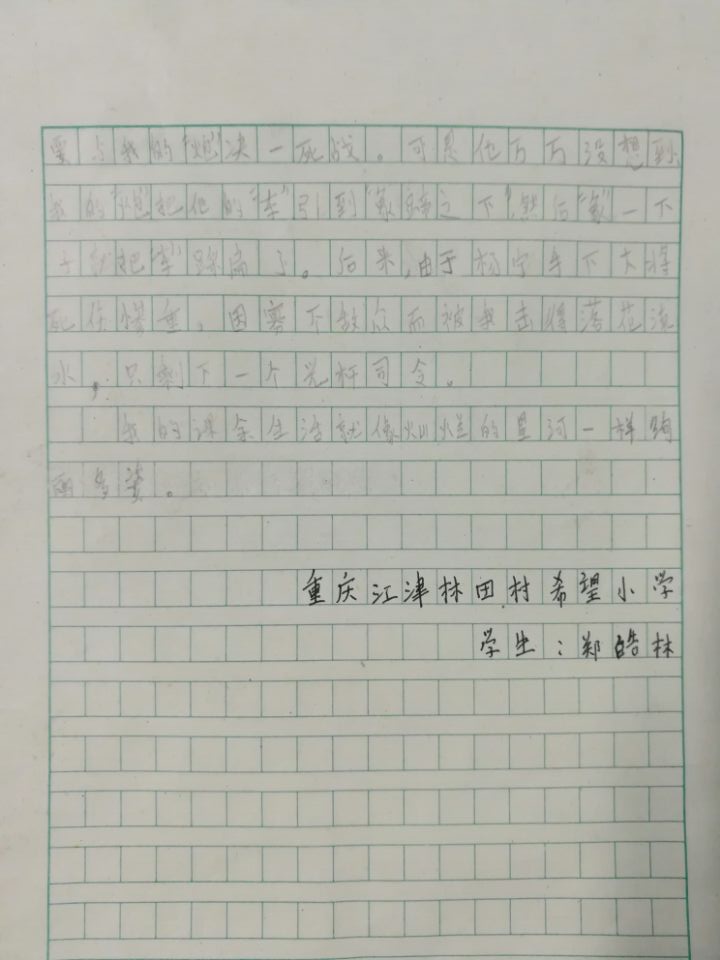 要与我的“炮”决一死战。可是他万万没想到
我的“炮”把他的“车”引到“象”蹄之下，然后“象”一下
子就把“车”踩扁了。后来，由于杨宇手下大将
死伤惨重，因寡不敌众而被我击得落花流
水，只剩下一个光杆司令。
我的课余生活就像灿烂的星河一样绚
丽多姿。
重庆江津林田村希望小学
学生：郑皓林